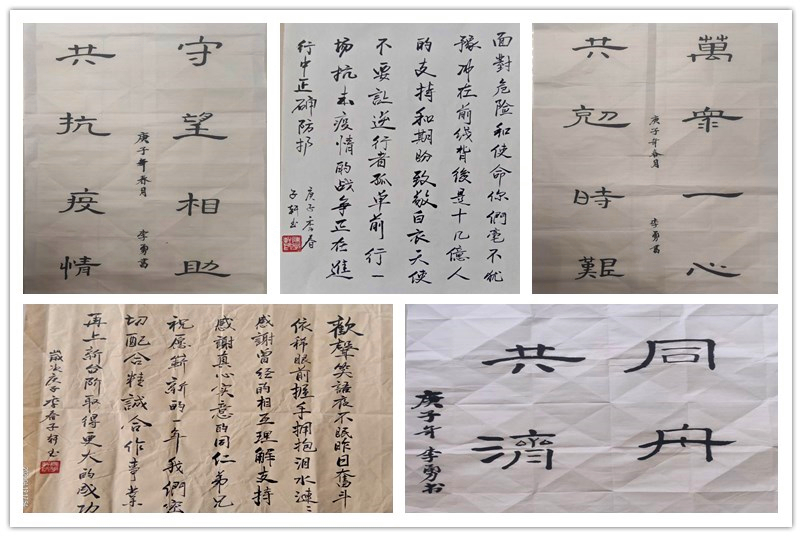 守望相助
共抗疫情
庚子年春月
李勇書
面對危险和使命你們毫不犹
豫冲在前线背後是十几億人
的支持和期盼致敬白衣天使
不要讓逆行者孤单前行一
场抗击疫情的战争正在進
行中正确防护
庚子季春
子轩书
萬眾一心
共剋時艱
庚子年春月
李勇書
歡聲笑語夜不眠昨日奮斗
依稀眼前握手拥抱泪水涟々
感謝曾经的相互理解支持
感謝真心实意的同仁弟兄
祝愿崭新的一年我們密
切配合精誠合作事業
再上新台阶取得更大的成功
歲次庚子季春子轩书
同舟
共濟
庚子年李勇书